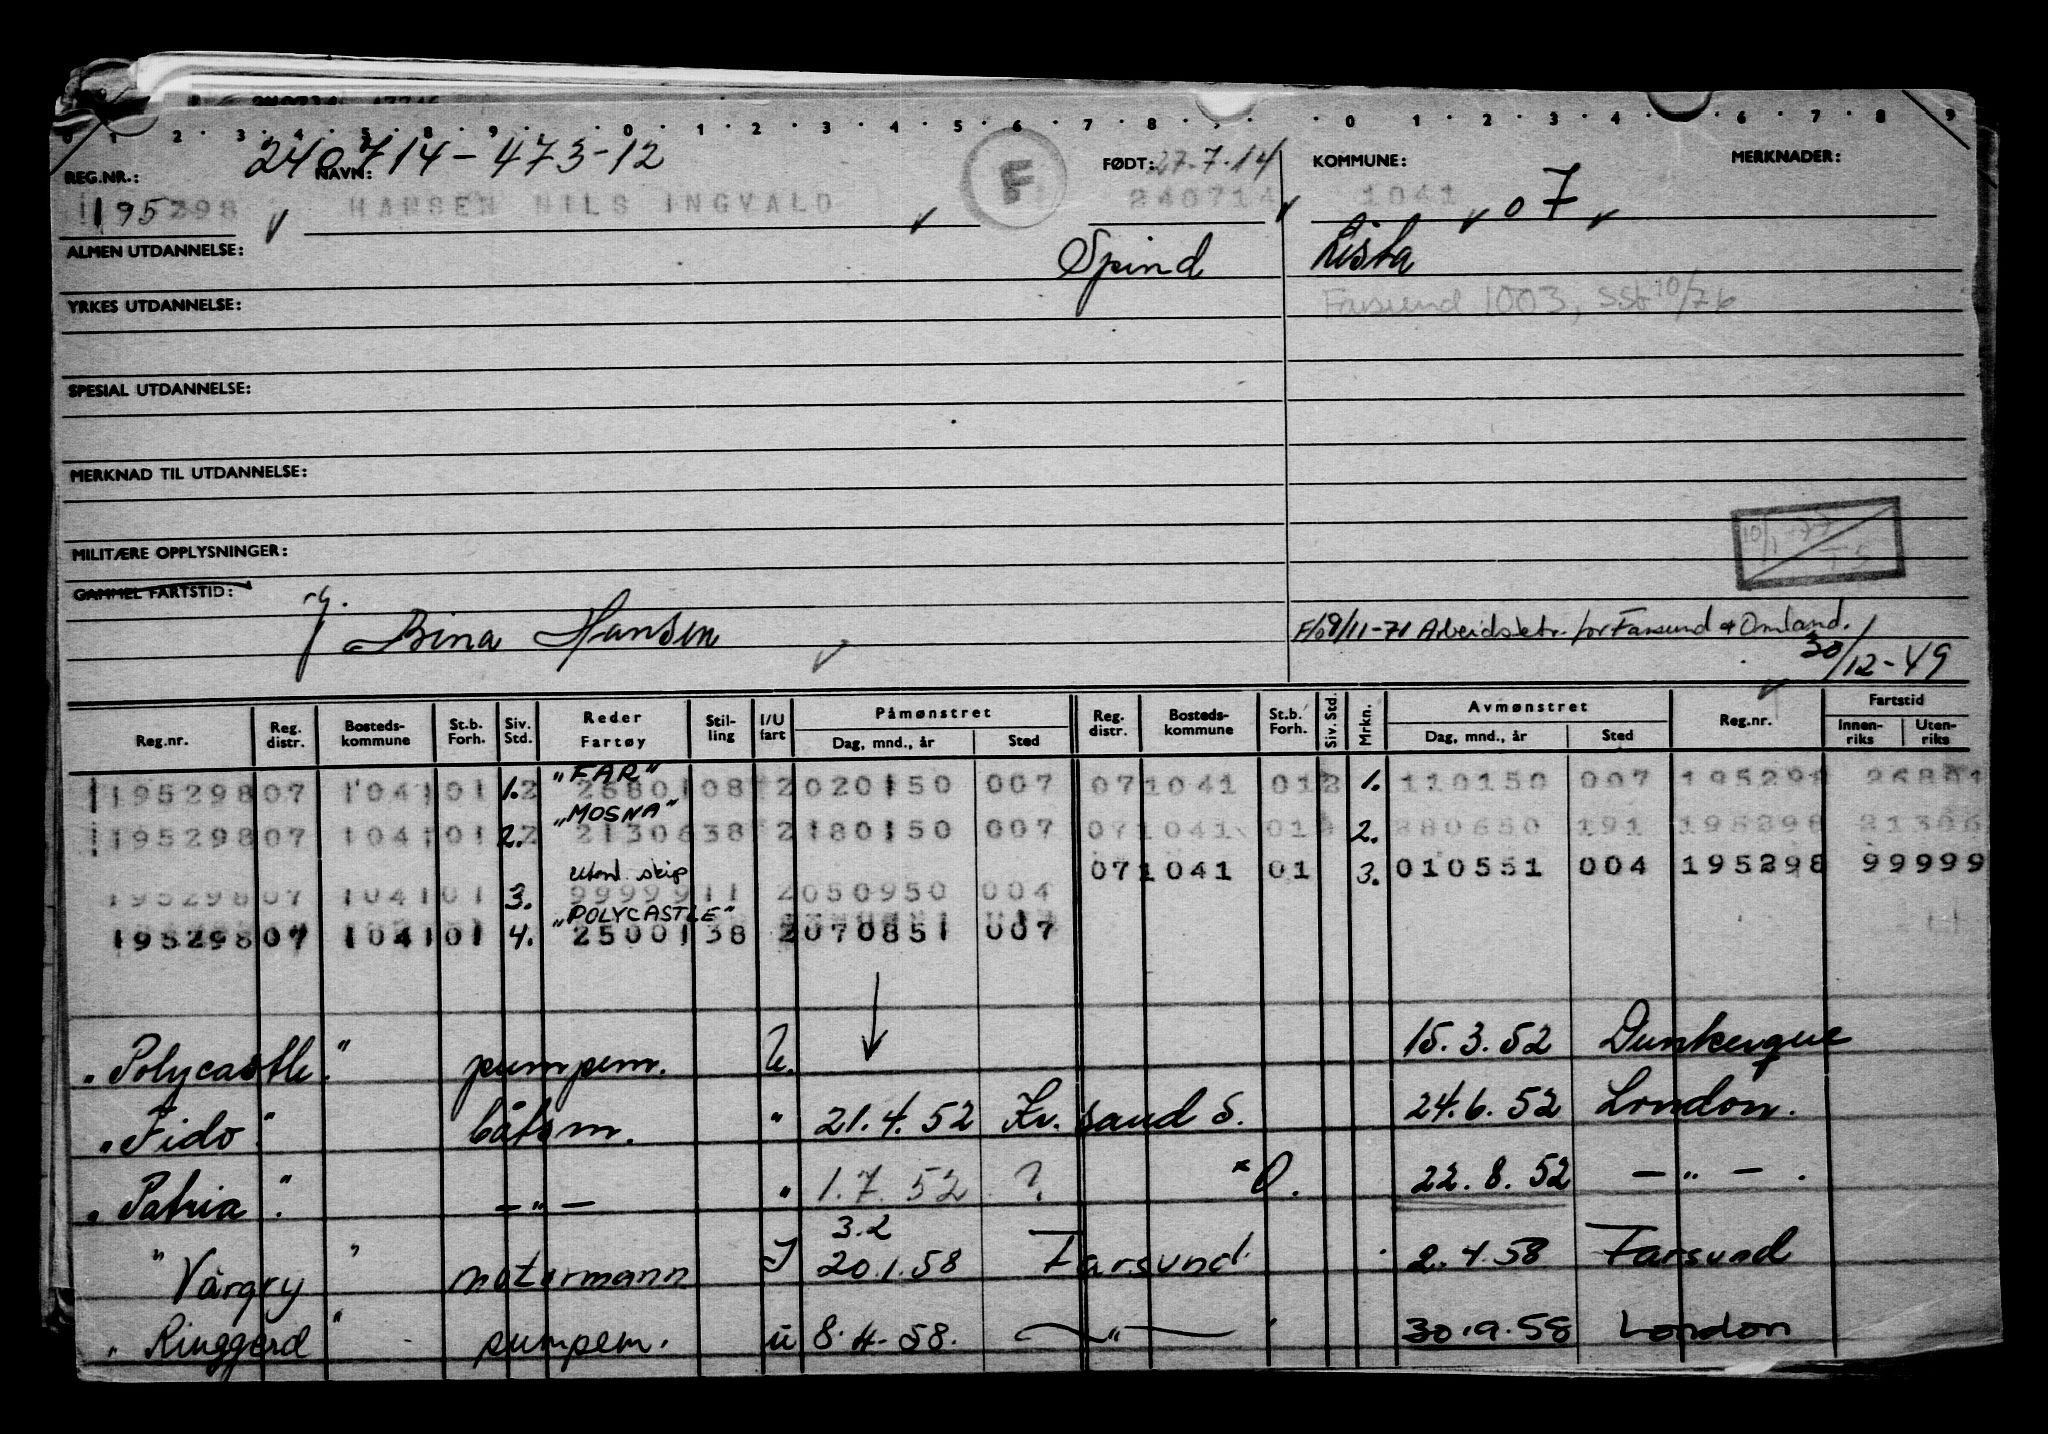 0 1 2 · 3 · 4 · 5 · 8 · 9 · · 0 · 1 · 2 · 3 · 4 · 5 · 6 · 7 · 8 · · · 0 · 1 · 2 · 3 · 4 · · 6 · 7 · 8 · 9
240714-473-12
REG.NR.: NAVN: F FØDT: 27.7.14 KOMMUNE: MERKNADER:
195298 HANSEN NILS INGVALD 240714 1041 07
ALMEN UTDANNELSE: Spind Lista
YRKES UTDANNELSE: Farsund 1003, SSb 10/76
SPESIAL UTDANNELSE:
MERKNAD TIL UTDANNELSE:
10/1-77 TS
MILITÆRE OPPLYSNINGER:
GAMMEL FARTSTID:
g. Bina Hansen F/o 9/11-71 Arbeidsktr. for Farsund & Omland.
30/12-49
Reg.nr. Reg. distr. Bosteds-kommune St.b. Forh. Siv. Std. Reder Fartøy Stil-ling I/U fart Påmønstret Dag, mnd., år Sted Reg. distr. Bosteds-kommune St.b. Forh. Siv. Std. Mrkn. Avmønstret Dag, mnd., år Sted Reg.nr. Fartstid Innen-riks Uten-riks
"FAR"
195298 07 1041 01 1. 2 26801 08 2 020150 007 07 1041 01 2 1. 110150 007 195298 26801
"MOSNA"
195298 07 1041 01 2. 2 21306 38 2 180150 007 07 1041 01 2. 280650 191 195298 21306
utenl. skip 07 1041 01 3. 010551 004 195298 99999
195298 07 1041 01 3. 99999 11 2 050950 004
"POLYCASTLE"
195298 07 1041 01 4. 25001 38 2 070851 007
"Polycastle" pumpem. U. 15.3.52 Dunkerque
"Fido" båtsm. " 21.4.52 Kr. sand S. 24.6.52 London.
"Patria" -"- " 1.7.52 ? *O. 22.8.52 -"-.
3.2
"Vårgry" motormann I 20.1.58 Farsund 2.4.58 Farsund
"Ringgerd" pumpem. u 8.4.58. -"- 30.9.58 London